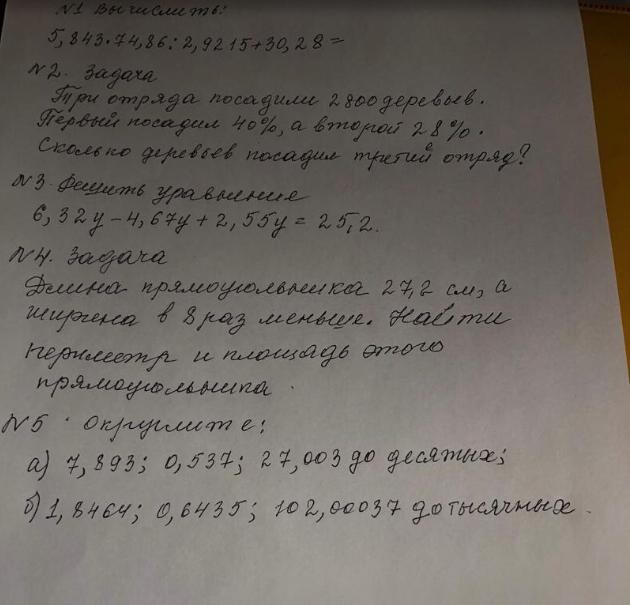 N1 Вычислить:
5,843·74,86:2,9215+30,28=
N2. Задача
Три отряда посадили 2800 деревьев.
Первый посадил 40%, а второй 28%.
Сколько деревьев посадил третий отряд?
N3. Решить уравнения
6,32y-4,67y+2,55y=25,2.
N4. Задача
Длина прямоугольника 27,2 см, а
ширина в 8 раз меньше. Найти
периметр и площадь этого
прямоугольника.
N5 Округлите:
а) 7,893; 0,537; 27,003 до десятых;
б) 1,8464; 0,6435; 102,00037 до тысячных.